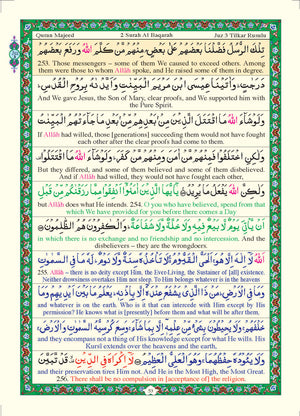 Quran Majeed 2 Surah Al Baqarah Juz 3 Tilkar Rusulu
تِلْكَ الرُّسُلُ فَضَّلْنَا بَعْضَهُمْ عَلٰى بَعْضٍ مِنْهُمْ مَّنْ كَلَّمَ اللّٰهُ وَرَفَعَ بَعْضَهُمْ
253. Those messengers – some of them We caused to exceed others. Among
them were those to whom Allāh spoke, and He raised some of them in degree.
دَرَجٰتٍ وَاٰتَيْنَا عِيْسَى ابْنَ مَرْيَمَ الْبَيِّنٰتِ وَاَيَّدْنٰهُ بِرُوْحِ الْقُدُسِ
And We gave Jesus, the Son of Mary, clear proofs, and We supported him with
the Pure Spirit.
وَلَوْشَآءَ اللّٰهُ مَا اقْتَتَلَ الَّذِيْنَ مِنْۢ بَعْدِهِمْ مِّنْۢ بَعْدِ مَا جَآءَتْهُمُ الْبَيِّنٰتُ
If Allāh had willed, those [generation] succeeding them would not have fought
each other after the clear proofs had come to them.
وَلٰكِنِ اخْتَلَفُوْا فَمِنْهُمْ مَّنْ اٰمَنَ وَمِنْهُمْ مَّنْ كَفَرَ وَلَوْشَآءَ اللّٰهُ مَا اقْتَتَلُوْا
But they differed, and some of them believed and some of them disbelieved.
And if Allāh had willed, they would not have fought each other,
وَلٰكِنَّ اللّٰهَ يَفْعَلُ مَا يُرِيْدُ يٰٓاَيُّهَا الَّذِيْنَ اٰمَنُوْٓا اَنْفِقُوْا مِمَّا رَزَقْنٰكُمْ مِّنْ قَبْلِ
but Allāh does what He intends. 254. O you who have believed, spend from that
which We have provided for you before there comes a Day
اَنْ يَّاْتِيَ يَوْمٌ لَّا بَيْعٌ فِيْهِ وَلَا خُلَّةٌ وَّلَا شَفَاعَةٌ وَالْكٰفِرُوْنَ هُمُ الظّٰلِمُوْنَ
in which there is no exchange and no friendship and no intercession. And the
disbelievers – they are the wrongdoers.
اَللّٰهُ لَآ اِلٰهَ اِلَّا هُوَ اَلْحَيُّ الْقَيُّوْمُ لَا تَاْخُذُهٗ سِنَةٌ وَّلَا نَوْمٌ لَهٗ مَا فِي السَّمٰوٰتِ
255. Allāh – there is no deity except Him, the Ever-Living, the Sustainer of [all] existence.
Neither drowsiness overtakes Him nor sleep. To Him belongs whatever is in the heavens
وَمَا فِي الْاَرْضِ مَنْ ذَا الَّذِيْ يَشْفَعُ عِنْدَهٗٓ اِلَّا بِاِذْنِهٖ يَعْلَمُ مَا بَيْنَ اَيْدِيْهِمْ وَمَا
and whatever is on the earth. Who is it that can intercede with Him except by His
permission? He knows what is [presently] before them and what will be after them,
خَلْفَهُمْ وَلَا يُحِيْطُوْنَ بِشَيْءٍ مِّنْ عِلْمِهٖٓ اِلَّا بِمَا شَآءَ وَسِعَ كُرْسِيُّهُ السَّمٰوٰتِ وَالْاَرْضَ
and they encompass not a thing of His knowledge except for what He wills. His
Kursi extends over the heavens and the earth,
وَلَا يَئُوْدُهٗ حِفْظُهُمَا وَهُوَ الْعَلِيُّ الْعَظِيْمُ لَآ اِكْرَاهَ فِي الدِّيْنِ قَدْ تَّبَيَّنَ
and their preservation tires Him not. And He is the Most High, the Most Great.
256. There shall be no compulsion in [acceptance of] the religion.